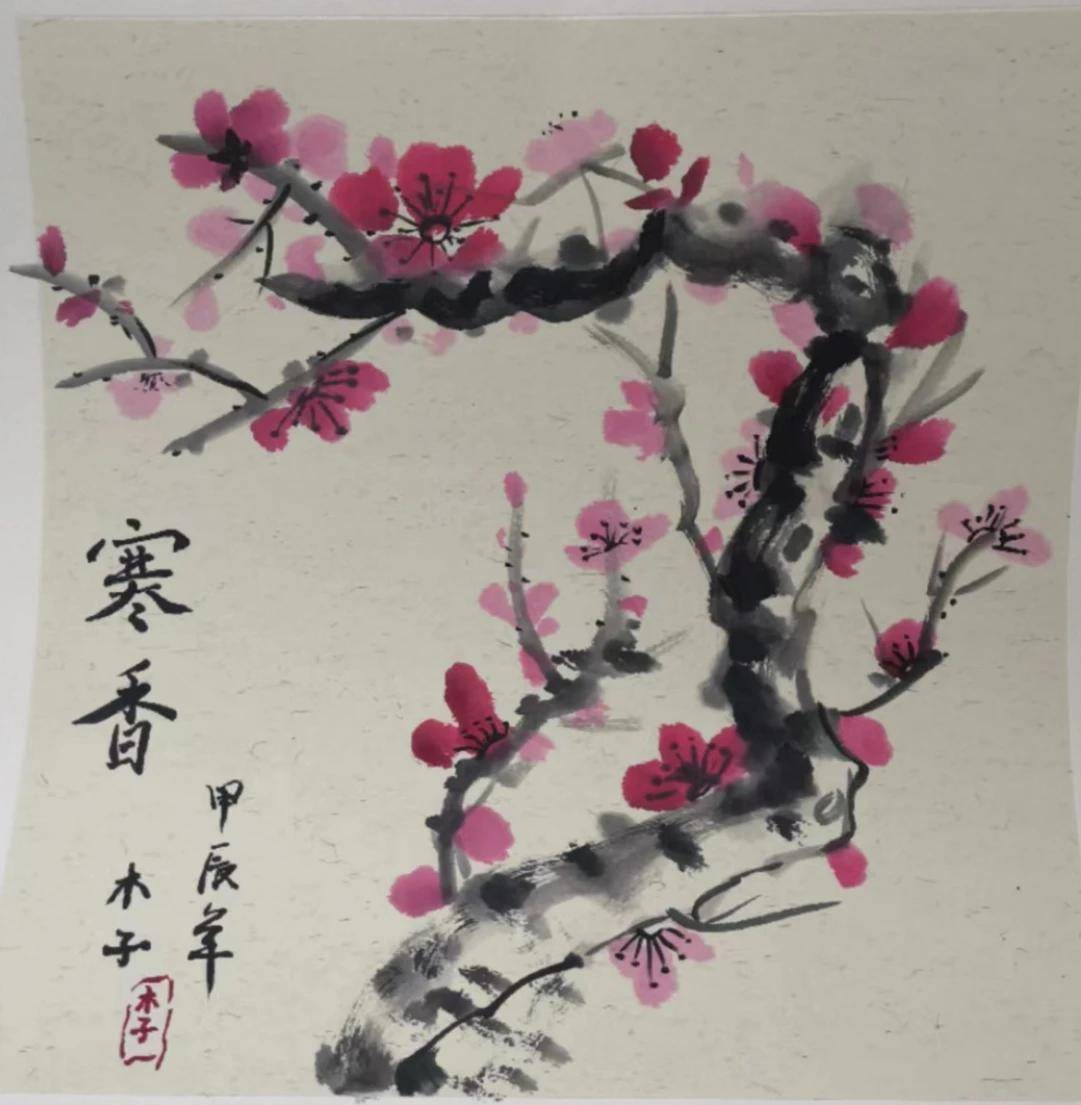 寒香
甲辰年
木子
木子